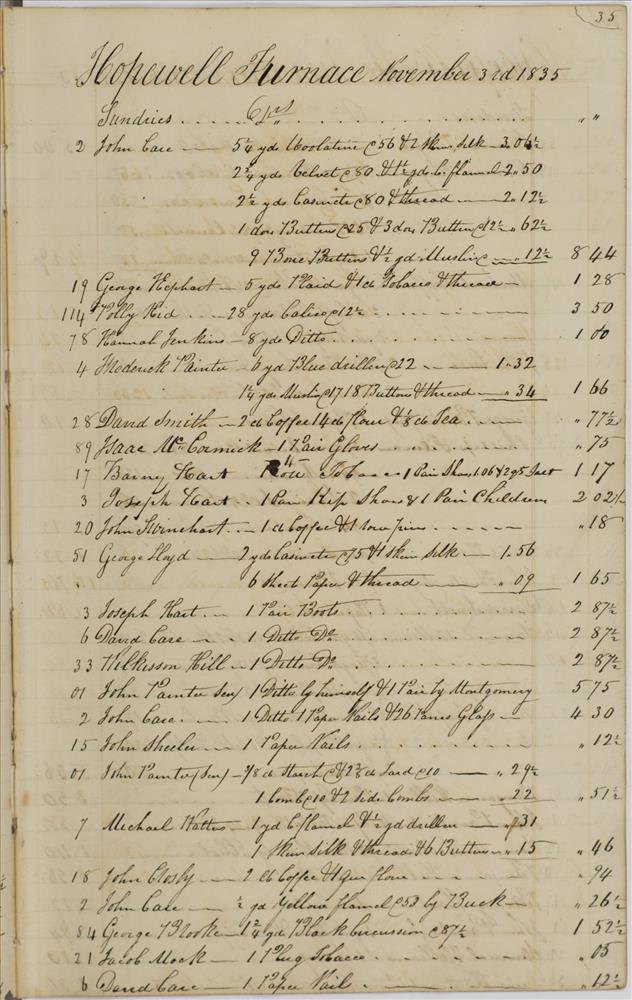 35
Hopewell Furnace November 3rd 1835
Sundries ..... Drs ..... " "
2 John Care — 5¼ yds Woolatine @ 56 & 2 Skins Silk — 3.06½
2¼ yds Velvet @ 80 & 1½ yds C. flannel 2.50
2½ yds Casinete @ 80 & thread — 2.12½
1 doz Buttons @ 25 & 3 doz Buttons @ 12½ " 62½
9 Bone Buttons & ½ yd Muslin — " 12½ 8 44
19 George Hephart — 5 yds Plaid & 1 lb Tobacco & thread — 1 28
114 Polly Kid .. — 28 yds Calico @ 12½ ..... 3 50
78 Hannah Jenkins — 8 yds Ditto ..... 1 00
4 Frederick Painter — 6 yd Blue drillen @ 22 — 1 " 32
1¼ yds Muslin @ 17 18 Buttons & thread — " 34 1 66
28 David Smith — 2 lb Coffee 14 lb flour & ⅛ lb Tea .... " 77½
89 Isaac McCormick — 1 Pair Gloves ..... " 75
17 Barny Hart 4 Tobacco 1 Pair Shoes 1.06 & 295 1 17
3 Joseph Hart .. 1 Pair Kip Shoes & 1 Pair Children 2 02½
20 John Swinehart .. — 1 lb Coffee & 1 row pins ..... " 18
51 George Lloyd — 2 yds Casinete @ 75 & 1 Skin Silk — 1.56
6 Sheet Paper & thread — " 09 1 65
3 Joseph Hart .. — 1 Pair Boots ..... 2 87½
6 David Care — . 1 Ditto Do ..... 2 87½
33 Wilkisson Hill — 1 Ditto Do ..... 2 87½
01 John Painter Sen) 1 Ditto by himself & 1 Pair by Montgomery 5 75
2 John Care . — 1 Ditto 1 Paper Nails & 26 Panes Glass — 4 30
15 John Sheeler — 1 Paper Nails ..... " 12½
01 John Painter (Sen) — lb Starch & 2⅜ lb Lard @ 10 — " 29½
1 Comb @ 10 & 2 Side Combs — " 22 " 51½
7 Michael Watts — 1 yd C. flannel & ½ yd drillen — " 31
1 Skin Silk & thread & 6 Buttons — " 15 " 46
18 John Closby — 2 lb Coffee & 1 qr flour — " 94
2 John Care — ½ yd Yellow flannel @ 53 by Buck — " 26½
84 George Brooke — 1¾ yd Black Circussion @ 87½ 1 52½
21 Jacob Mock — 1 Plug Tobacco ..... " 05
6 David Care — 1 Paper Nails ..... " 12½